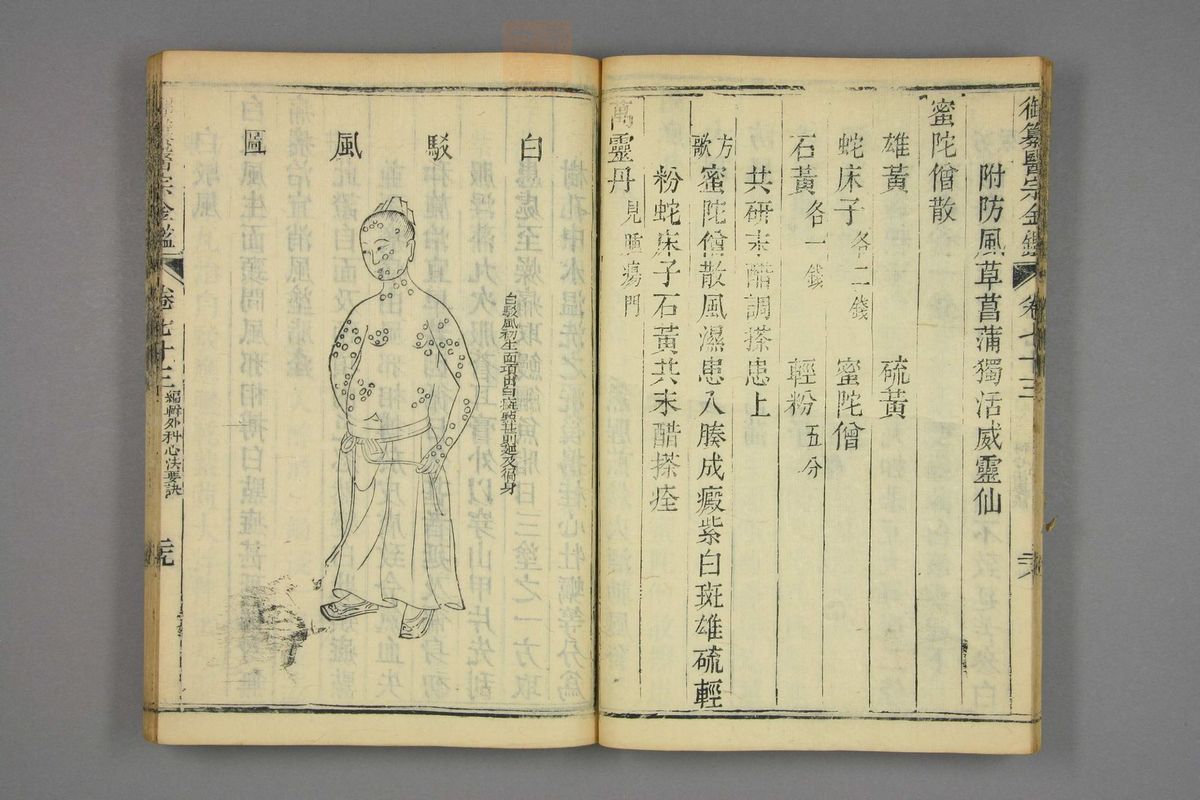 御纂醫宗金鑑 卷七十三
附防風草菖蒲獨活威靈仙
蜜陀僧散
雄黃 硫黃
蛇床子各二錢 蜜陀僧
石黃各一錢 輕粉五分
共研末醋調搽患上
方歌 蜜陀僧散風濕患入腠成癜紫白斑雄硫輕
粉蛇床子石黃共末醋搽痊
萬靈丹見腫瘍門
白駁風圖
白駁風初生面項由白斑點甚則延及徧身
醫宗金鑑 卷七十三 編輯外科心法要訣